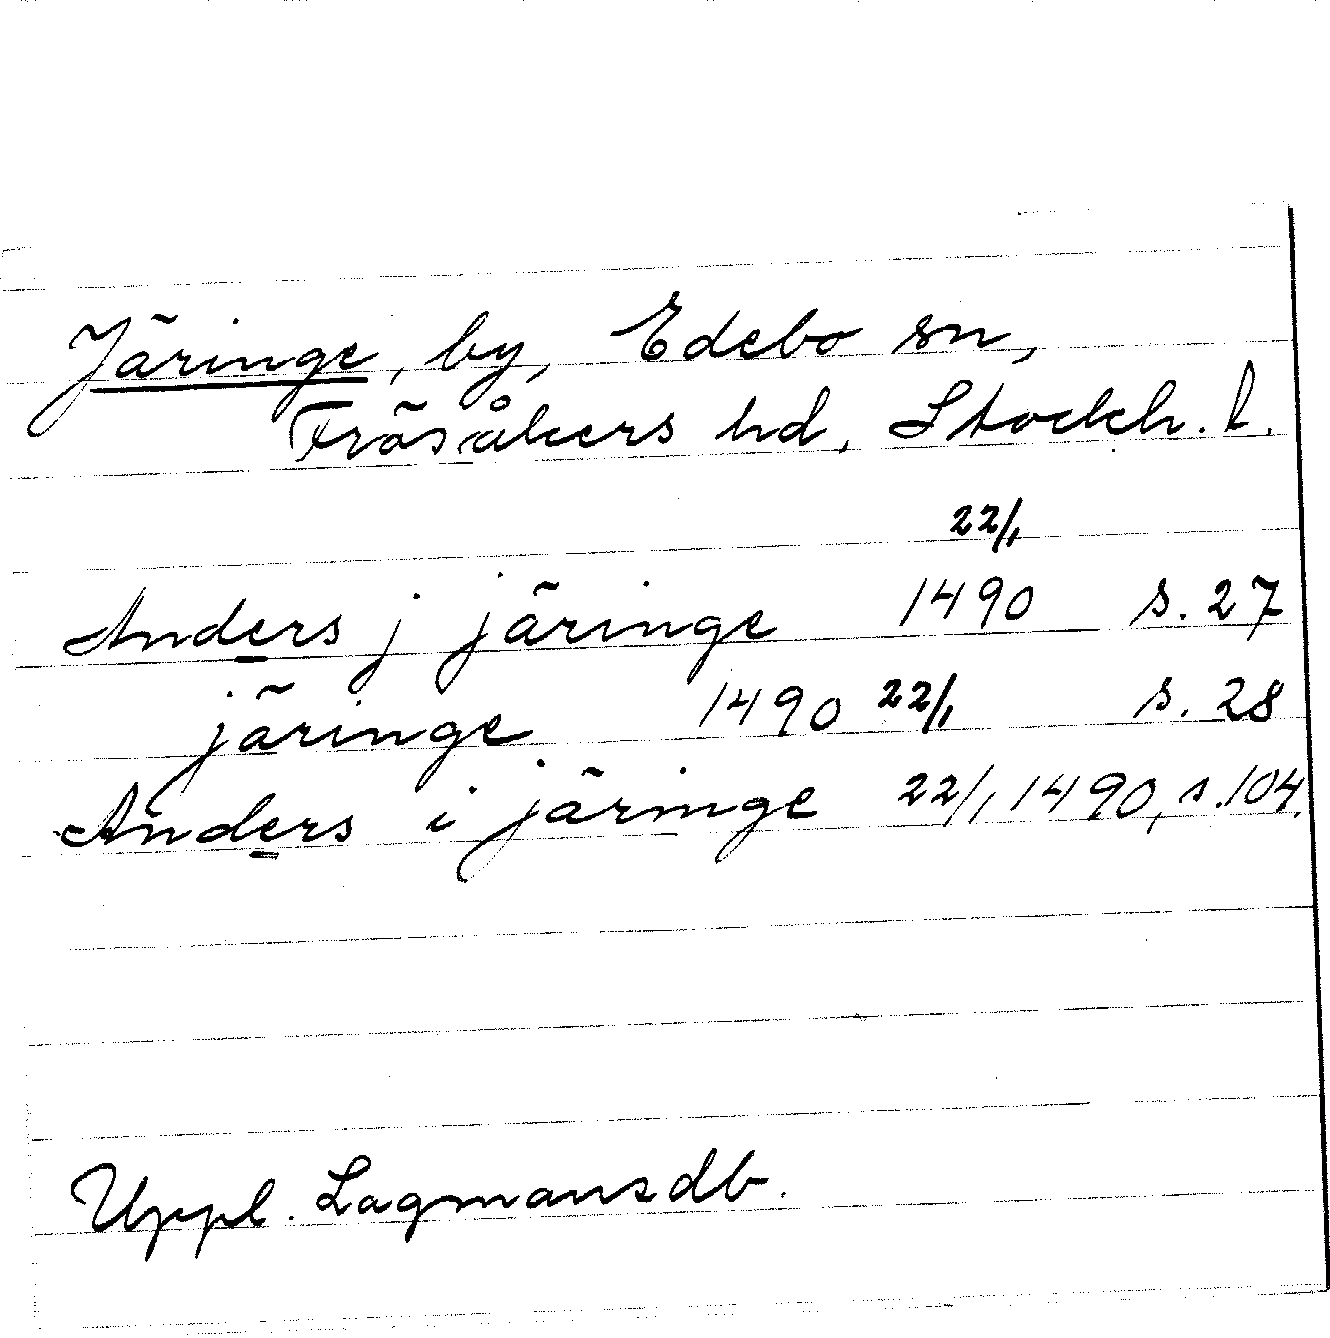 Järinge, by, Edebo sn,
Frösåkers hd, Stockh. l.
22/1
Anders j järinge 1490 s. 27
järinge 1490 22/1 s. 28
Anders i järinge 22/1 1490, s. 104.
Uppl. Lagmansdb.